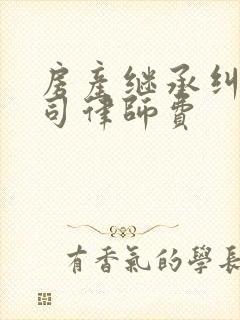 房產继承纠
司律師費
有香氣的學長